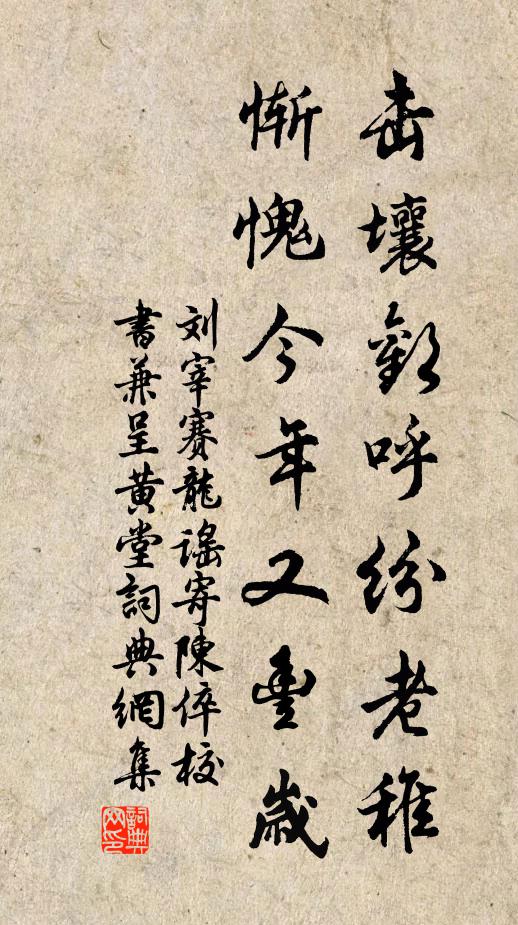 击壤歡呼紛老稚
慚愧今年又豐歲
刘宰賽龍謠寄陳倅校
書兼呈黄堂詞典網集
詞典网印